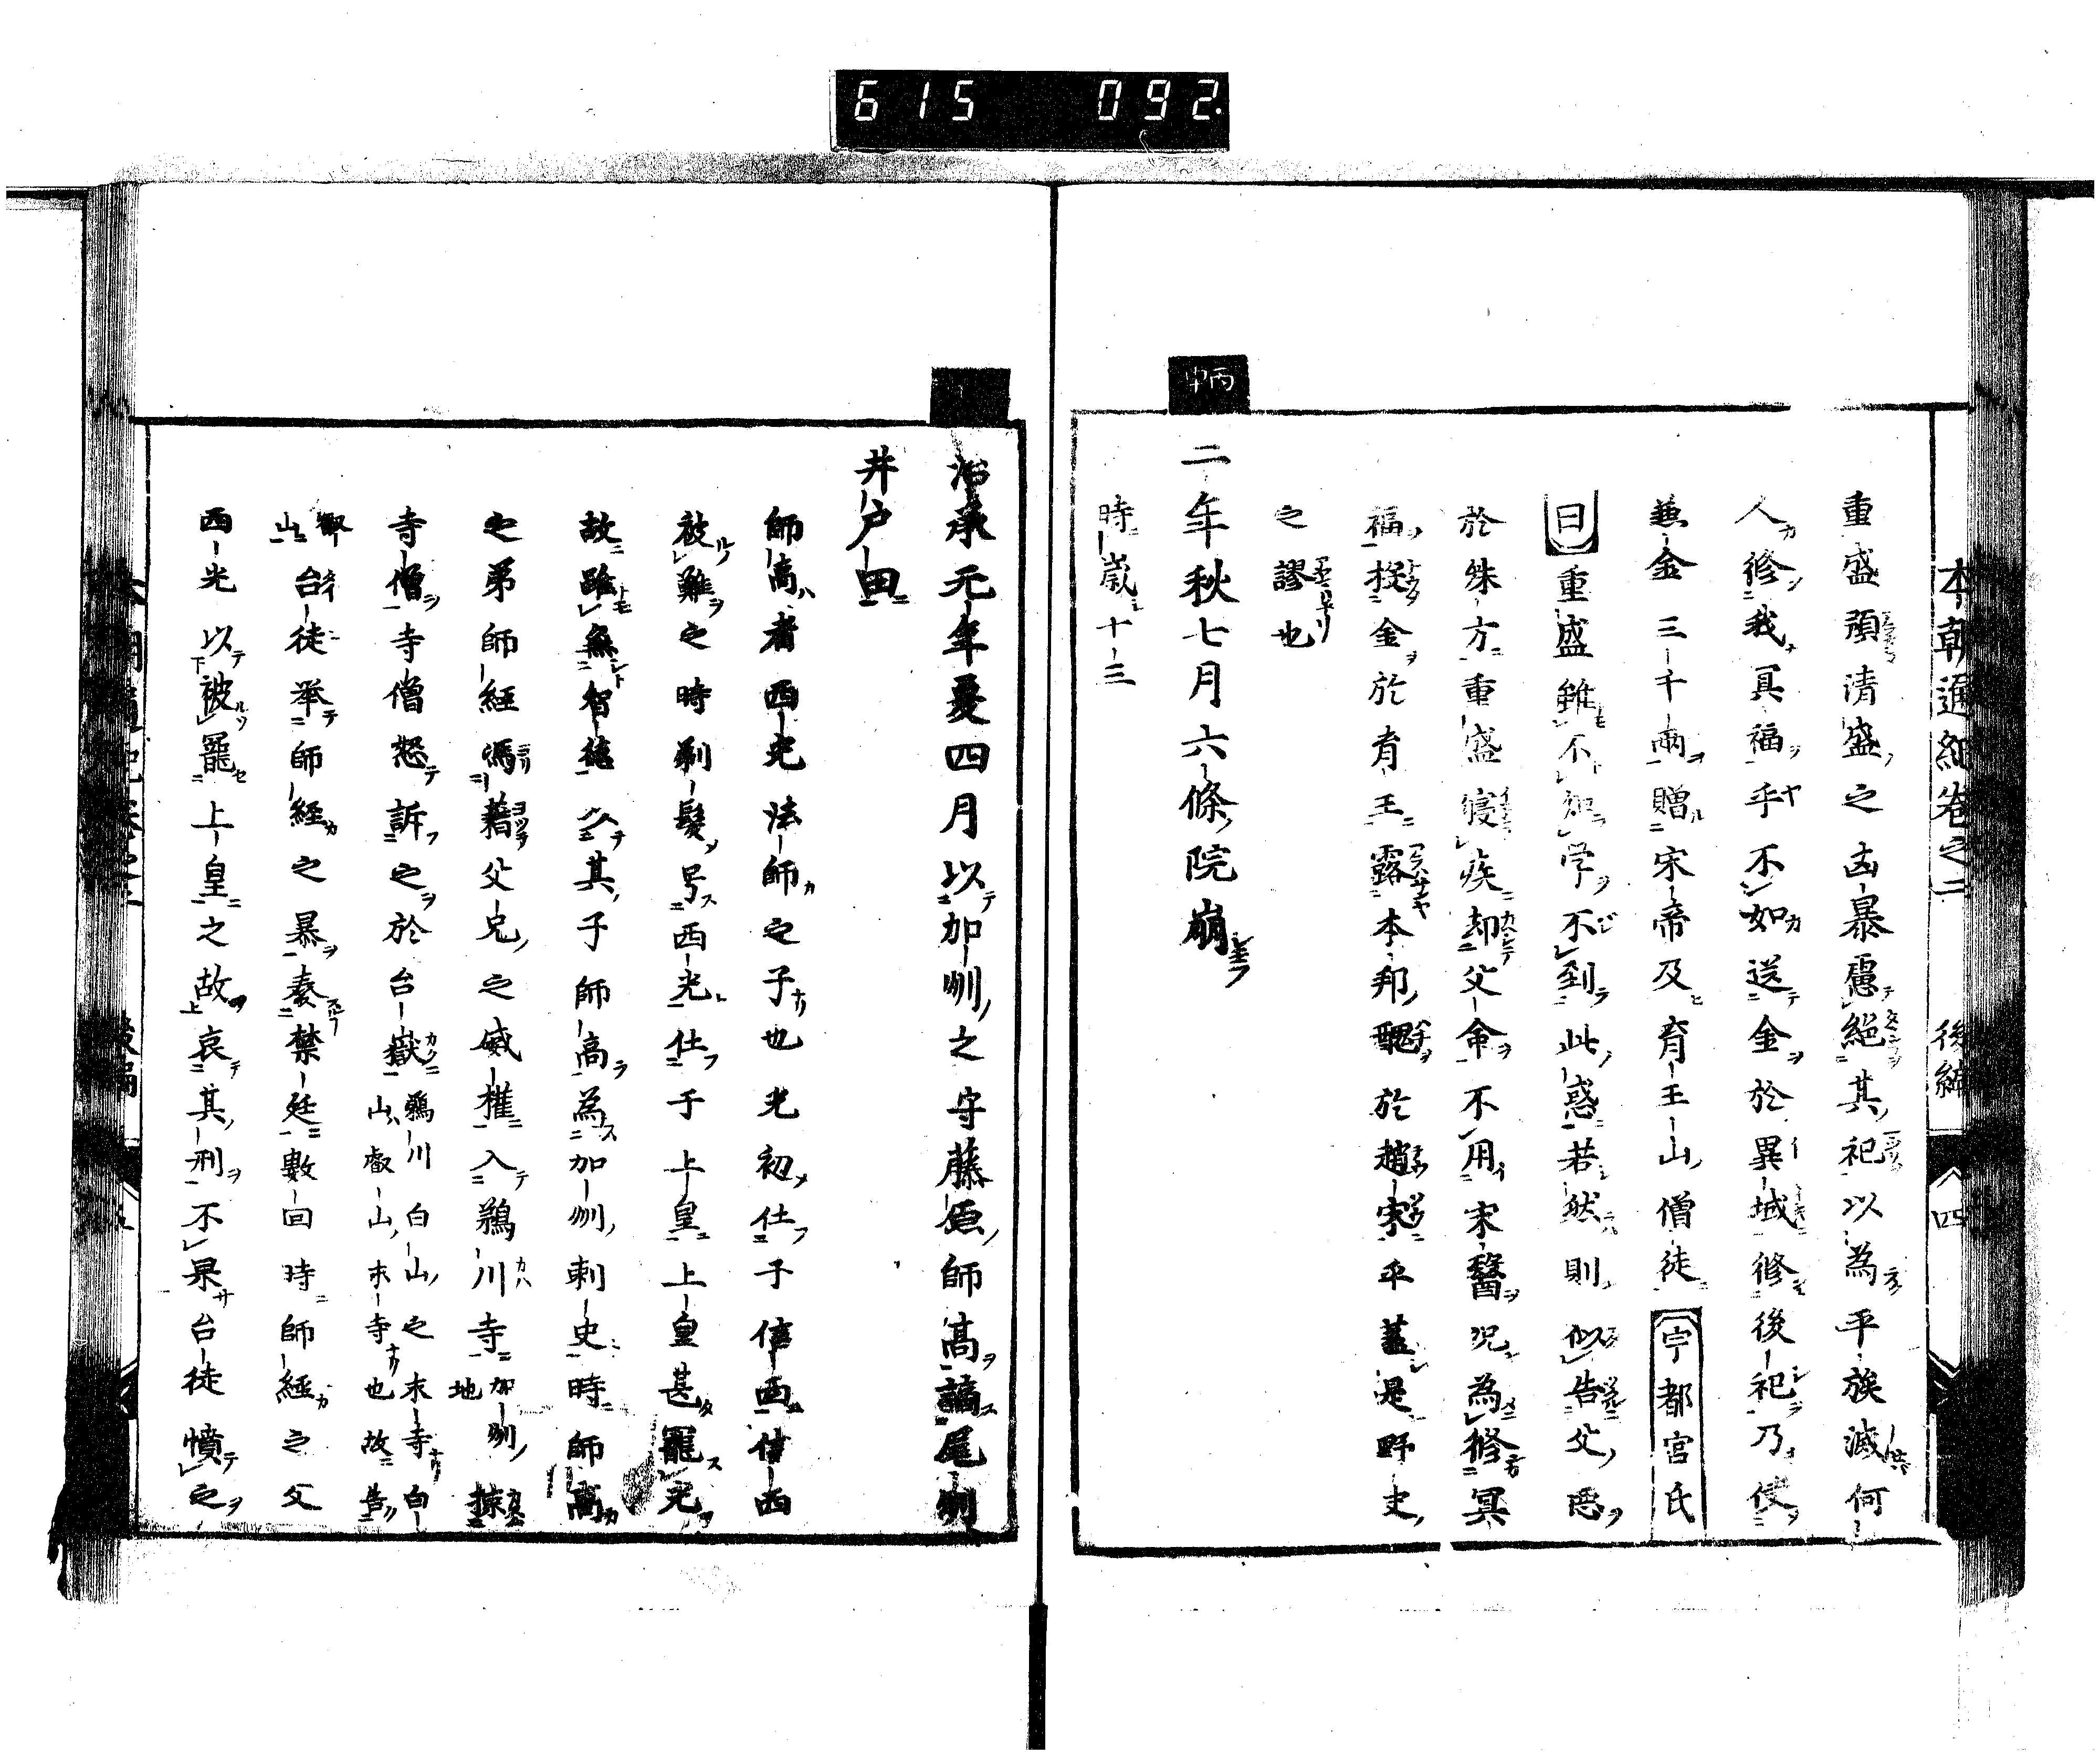 615 092
本朝通紀卷之二 後編 四
重盛預清盛之凶暴慮絕其祀以為平族滅何
人修我冥福乎不如送金於異域修後祀乃使
兼金三千兩贈宋帝及育王山僧徒宇都宮氏
曰重盛雖不知学不到此惑若然則似告父惡
於殊方重盛寢疾却父命不用宋醫況為修冥
福投金於育王露本邦醜於趙宋乎蓋是野史
之謬也
丙申
二年秋七月六條院崩
時歲十三
治承元年夏四月以加州之守藤原師高謫尾州
井戶田
師高者西光法師之子也光初仕于信西信西
被難之時剃髮号西光仕于上皇上皇甚寵光
故雖無智德以其子師高為加州刺史時師高
之弟師經馮藉父兄之威權入鵜川寺加州地掠
寺僧寺僧怒訴之於台嶽鵜川白山之末寺白山叡山末寺也故普
叡山台徒举師經之暴奏禁廷數回時師經之父
西光以被寵上皇之故哀其刑不果台徒憤之